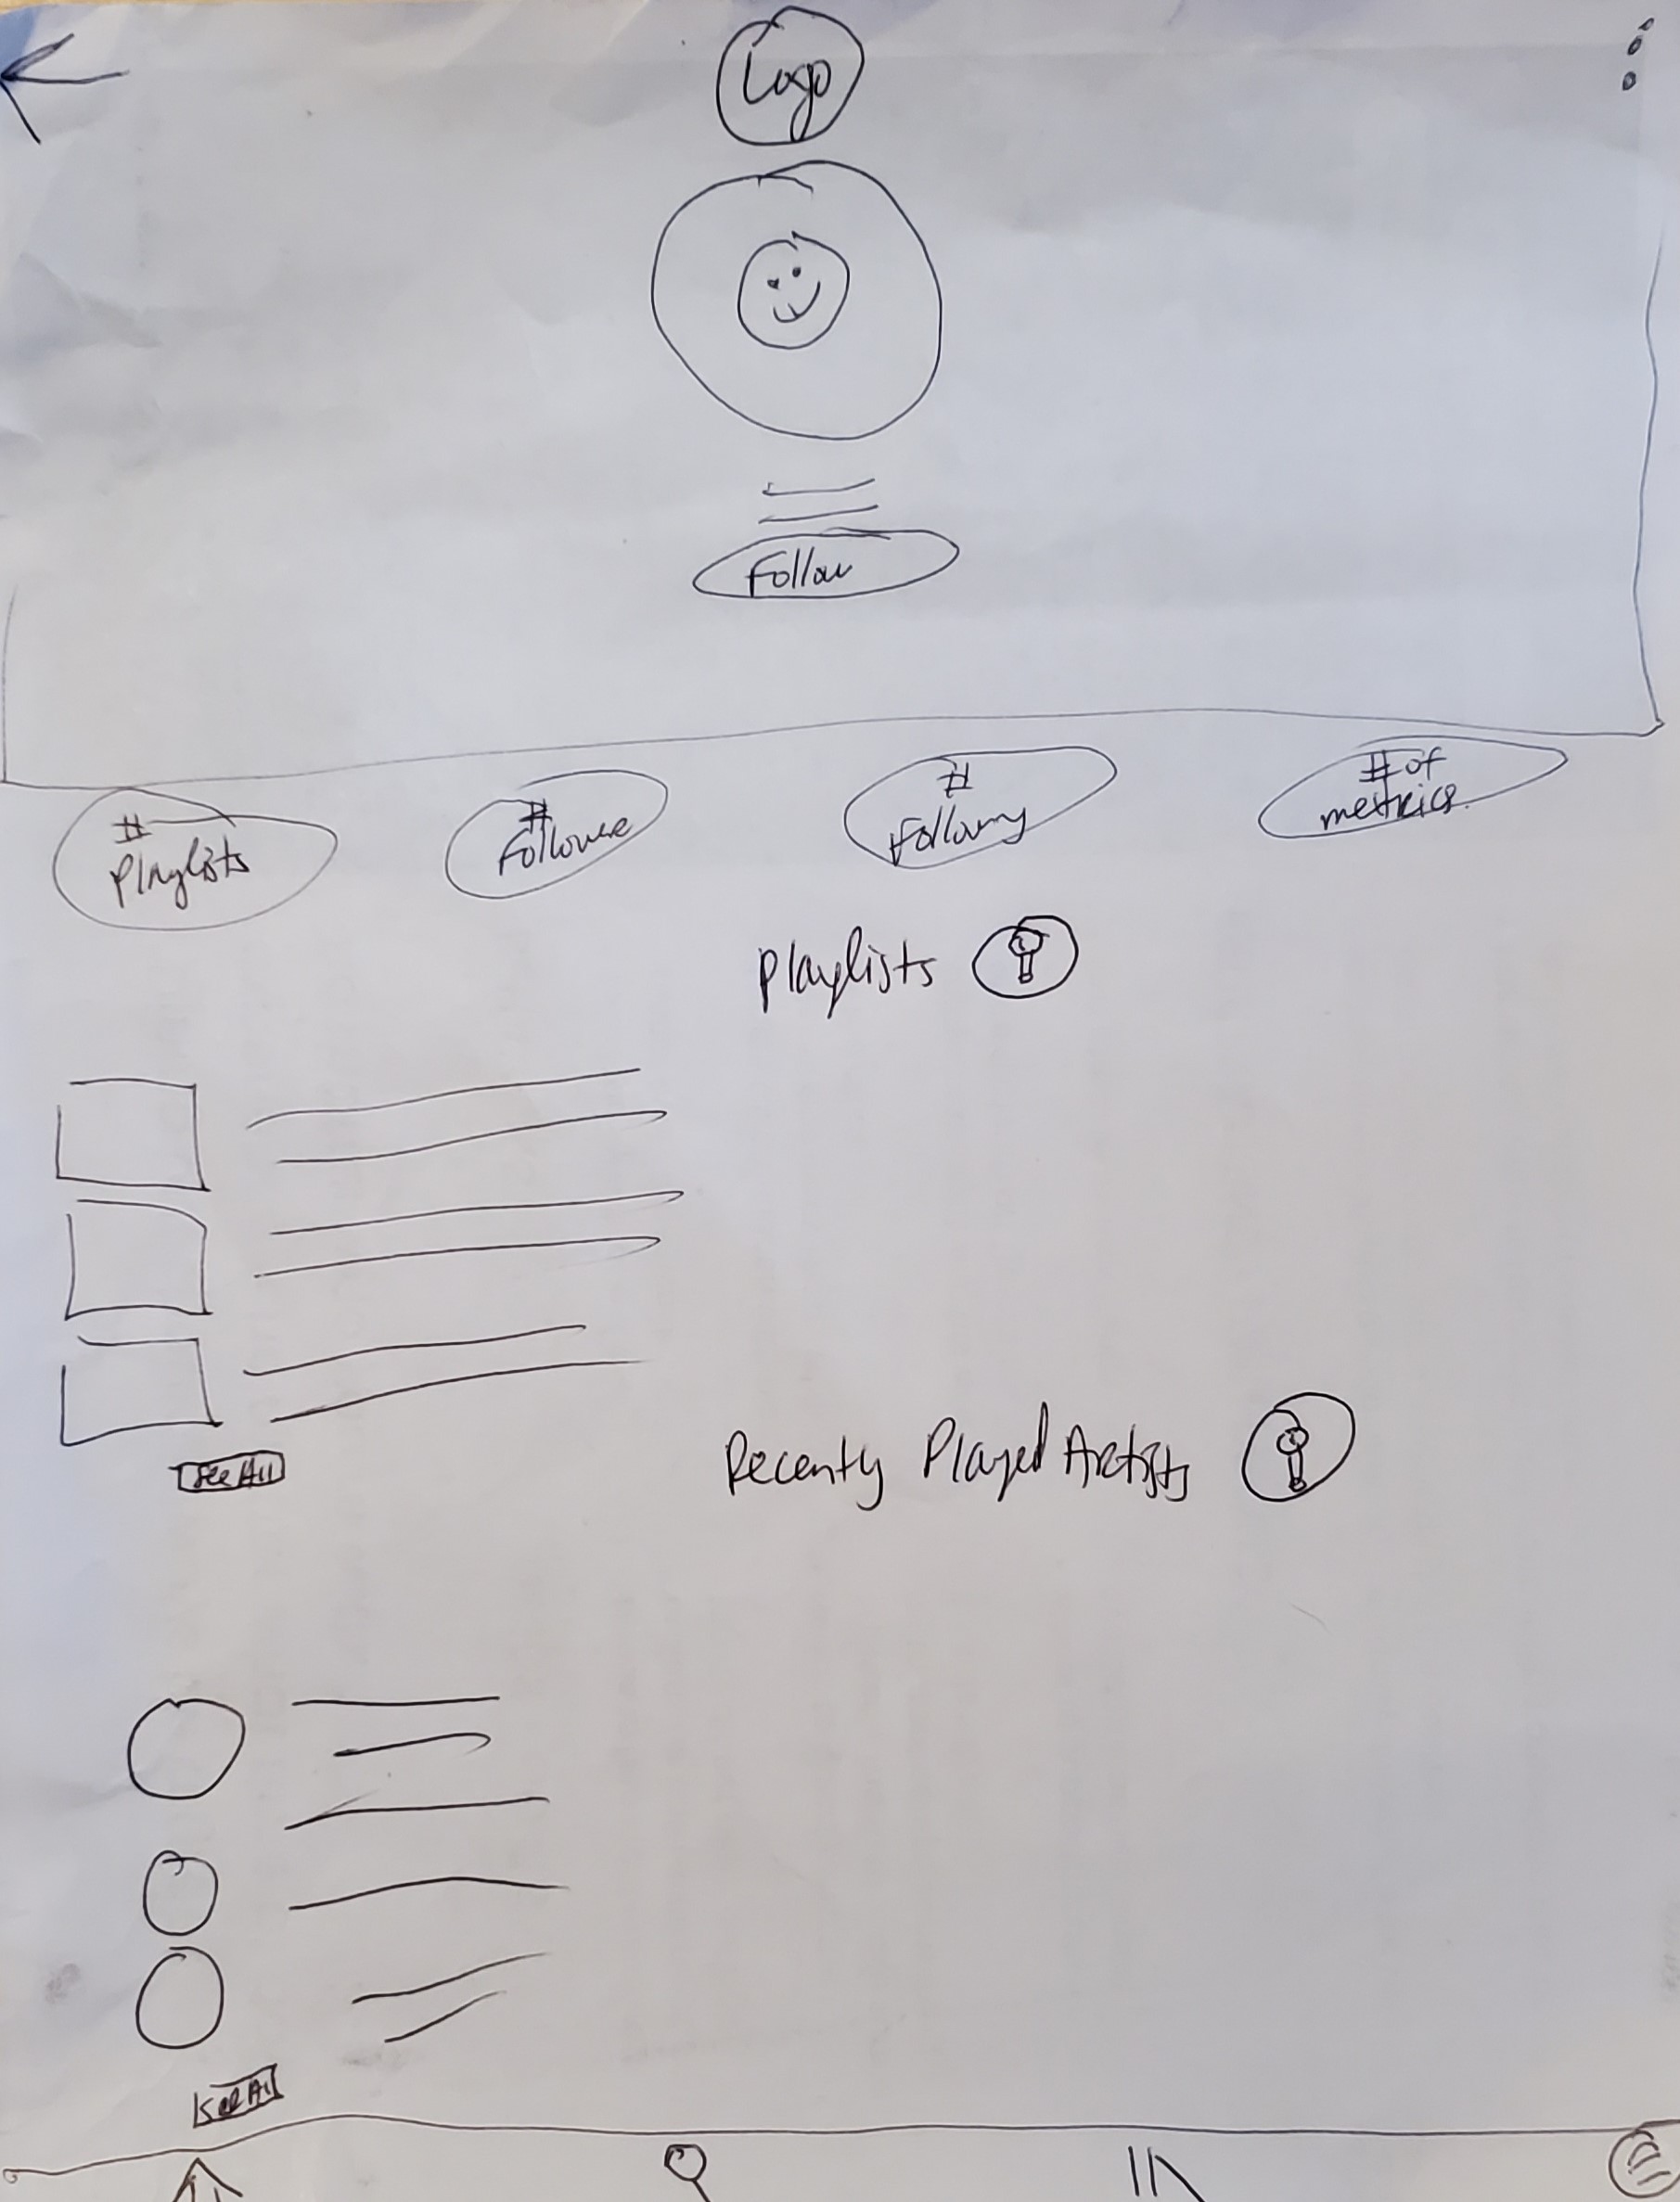 Logo
Follow
#
Playlists
#
Follower
#
Following
# of
metrics
Playlists
See All
Recently Played Artists
See All